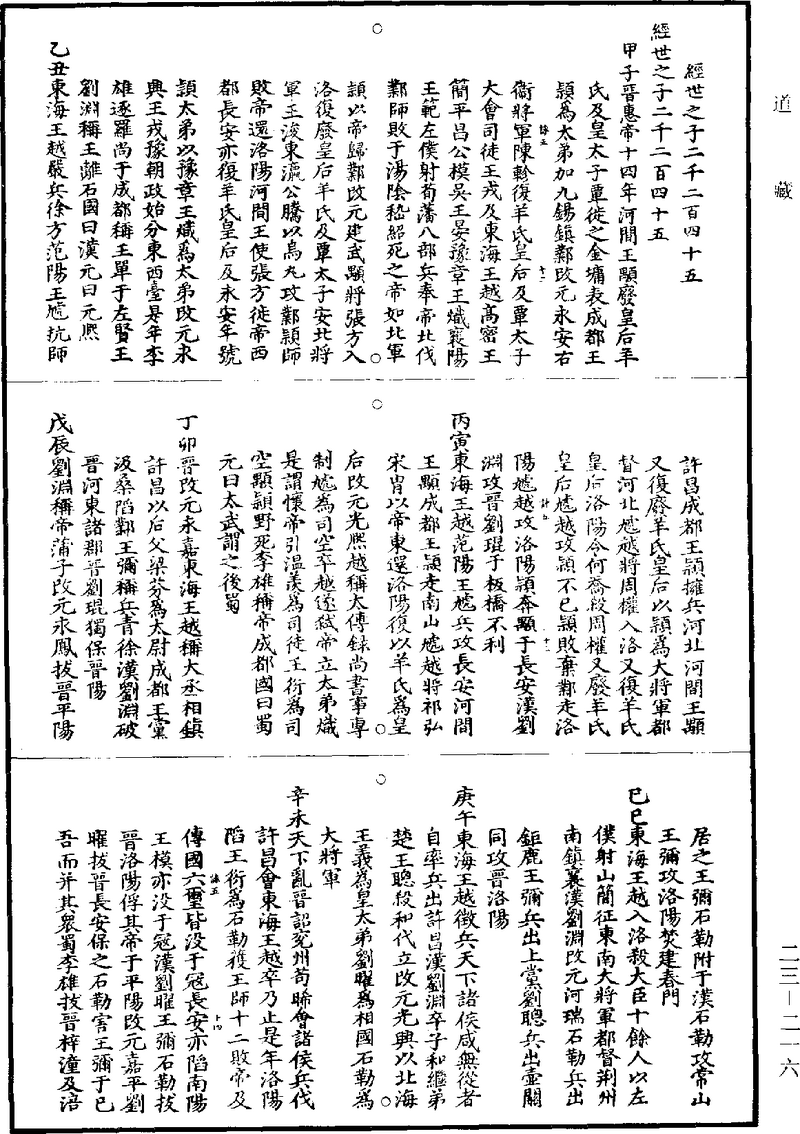 道藏
經世之子二千二百四十五
經世之子二千二百四十五
甲子晉惠帝十四年河間王顒廢皇后羊
氏及皇太子覃徙之金墉表成都王
穎為太弟加九錫鎮鄴改元永安右
衛將軍陳軫復羊氏皇后及覃太子
大會司徒王戎及東海王越高密王
簡平昌公模吳王晏豫章王熾襄陽
王範左僕射荀藩八部兵奉帝北伐
鄴師敗于湯陰嵇紹死之帝如北軍
穎以帝歸鄴改元建武顒將張方入
洛復廢皇后羊氏及覃太子安北將
軍王浚東瀛公騰以烏丸攻鄴穎師
敗帝還洛陽河間王使張方徙帝西
都長安亦復羊氏皇后及永安年號
穎太弟以豫章王熾為太弟改元永
興王戎豫朝政始分東西臺是年李
雄逐羅尚于成都稱王單于左賢王
劉淵稱王離石國曰漢元曰元熙
乙丑東海王越嚴兵徐方范陽王虓抗師
許昌成都王穎擁兵河北河間王顒
又復廢羊氏皇后以穎為大將軍都
督河北虓越將周權入洛又復羊氏
皇后洛陽令何喬殺周權又廢羊氏
皇后虓越攻穎不已穎敗棄鄴走洛
陽虓越攻洛陽穎奔顒于長安漢劉
淵攻晉劉琨于板橋不利
丙寅東海王越范陽王虓兵攻長安河間
王顒成都王穎走南山虓越將祁弘
宋胄以帝東還洛陽復以羊氏為皇
后改元光熙越稱太傅録尚書事專
制虓為司空卒越遂弒帝立太弟熾
是謂懷帝引溫羨為司徒王衍為司
空顒穎野死李雄稱帝成都國曰蜀
元曰太武謂之後蜀
丁卯晉改元永嘉東海王越稱大丞相鎮
許昌以后父梁芬為太尉成都王黨
汲桑陷鄴王彌稱兵青徐漢劉淵破
晉河東諸郡晉劉琨獨保晉陽
戊辰劉淵稱帝蒲子改元永鳳拔晉平陽
居之王彌石勒附于漢石勒攻常山
王彌攻洛陽焚建春門
己巳東海王越入洛殺大臣十餘人以左
僕射山簡征東南大將軍都督荆州
南鎮襄漢劉淵改元河瑞石勒兵出
鉅鹿王彌兵出上黨劉聰兵出壺關
同攻晉洛陽
庚午東海王越徵兵天下諸侯咸無從者
自率兵出許昌漢劉淵卒子和繼弟
楚王聰殺和代立改元光興以北海
王義為皇太弟劉曜為相國石勒為
大將軍
辛未天下亂晉詔兗州荀晞會諸侯兵伐
許昌會東海王越卒乃止是年洛陽
陷王衍為石勒獲王師十二敗帝及
傳國六璽皆没于冦長安亦陷南陽
王模亦没于冦漢劉曜王彌石勒拔
晉洛陽俘其帝于平陽改元嘉平劉
曜拔晉長安保之石勒害王彌于己
吾而并其眾蜀李雄拔晉梓潼及涪
二三—二一六